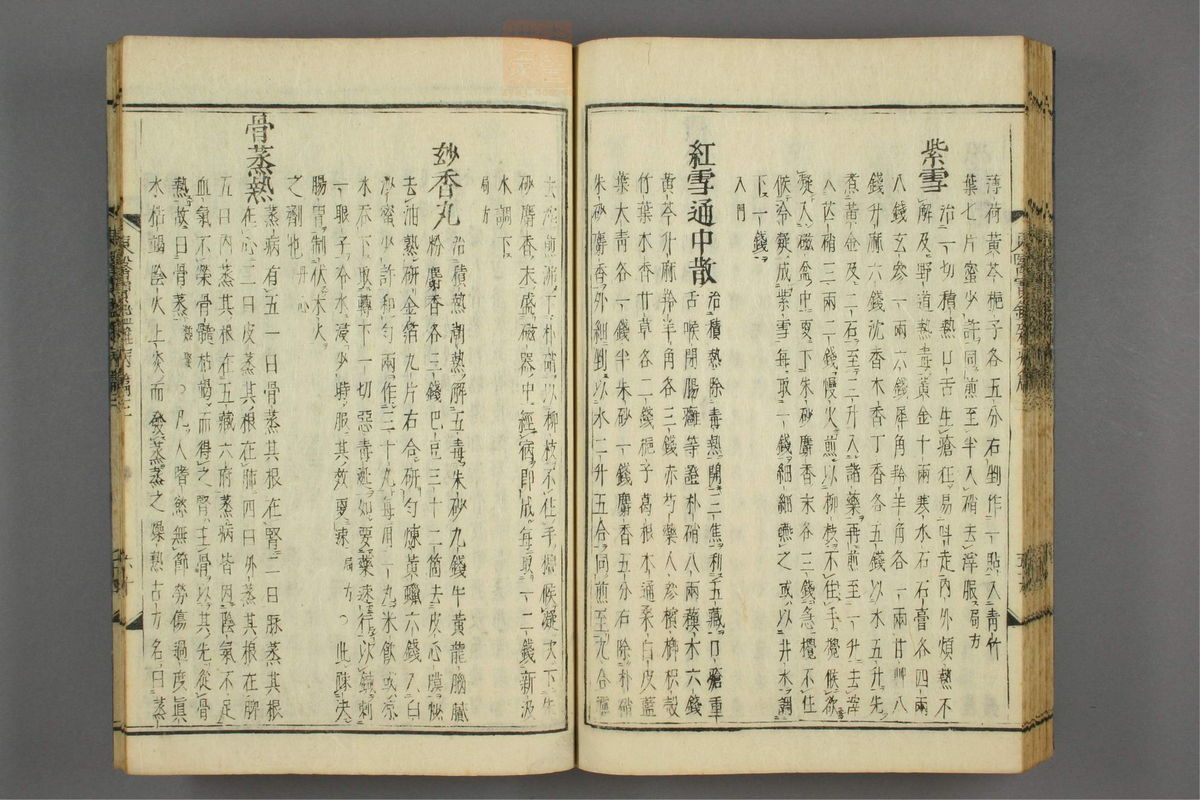 薄荷黃芩梔子各五分右剉作一貼入青竹
葉七片蜜少許同煎至半入硝去滓服局方
紫雪
治一切積熱口舌生瘡狂易叫走內外煩熱不
解及野道熱毒黃金十兩寒水石石膏各四兩
八錢玄參一兩六錢犀角羚羊角各一兩甘艸八
錢升麻六錢沈香木香丁香各五錢以水五升先
煮黃金及二石至三升入諸藥再煎至一升去滓
入芒硝三兩二錢慢火煎以柳枝不住手攪候欲
凝入磁盆中更下朱砂麝香末各三錢急攪不住
候冷凝成紫雪每取一錢細細嚥之或以井水調
下一錢
入門
紅雪通中散
治積熱除毒熱開三焦利五藏口瘡重
舌喉閉腸癰等證朴硝八兩蘇木六錢
黃芩升麻羚羊角各三錢赤芍藥人參檳榔枳殼
竹葉木香甘草各二錢梔子葛根木通桑白皮藍
葉大青各一錢半朱砂一錢麝香五分右除朴硝
朱砂麝香外細剉以水二升五合同煎至九合濾
去滓煎沸下朴硝以柳枝不住手攪候凝次下朱
砂麝香末盛磁器中經宿卽成每取一二錢新汲
水調下
局方
妙香丸
治積熱潮熱解五毒朱砂九錢牛黃龍腦膩
粉麝香各三錢巴豆三十二箇去皮心膜極
去油熟硏金箔九片右合硏勻煉黃蠟六錢入白
沙蜜少許和勻兩作三十丸每用一丸米飮或涼
水呑下取轉下一切惡毒涎如要藥速行以鍼刺
一眼子冷水浸少時服其效更速局方○此陳決
腸胃制伏木火
之劑也丹心
骨蒸熱
蒸病有五一曰骨蒸其根在腎二曰脈蒸其根
在心三曰皮蒸其根在肺四曰外蒸其根在脾
五曰內蒸其根在五藏六府蒸病皆因陰氣不足
血氣不榮骨髓枯竭而得之腎主骨以其先從骨
熱故曰骨蒸○凡人嗜慾無節勞傷過度眞
水枯竭陰火上炎而發蒸蒸之燥熱古方名曰蒸